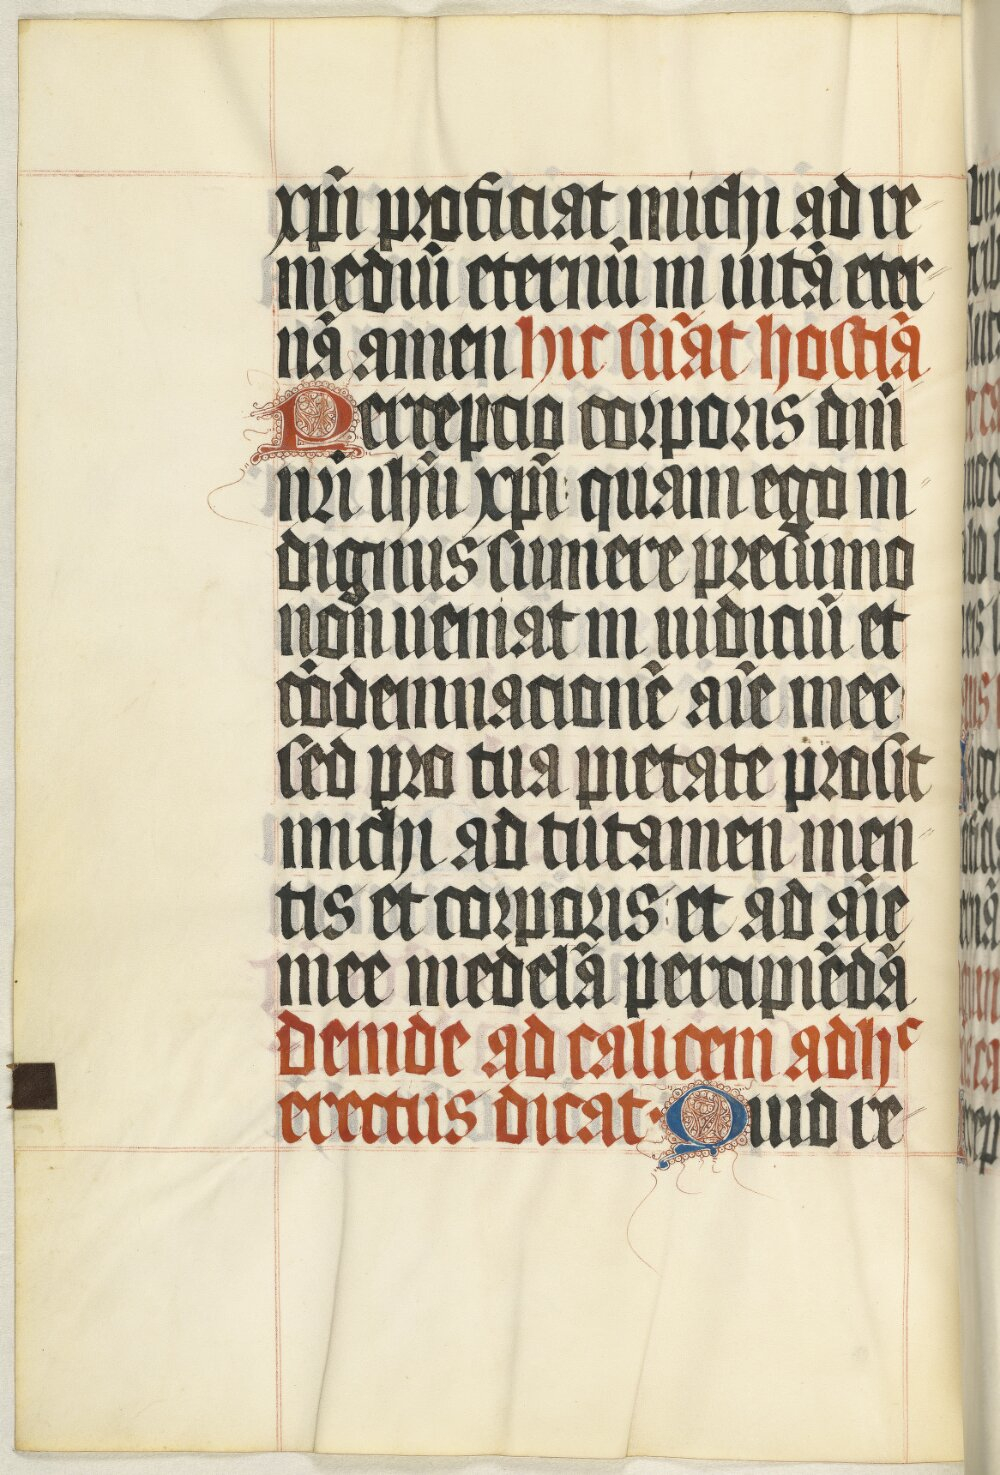 xp̃i proficiat michi ad re
mediũ eternũ in uitã eter
nã amen hic sũat hostiã
Percepcio corporis dñi
nr̃i ihũ xp̃i quam ego in
dignus sumere presumo
non ueniat in iudiciũ et
cõdempnacionẽ aĩe mee
sed pro tua pietate prosit
michi ad tutamen men
tis et corporis et ad aĩe
mee medelã percipiẽdã
Deinde ad calicem adhᶜ
erectus dicat· Quid re